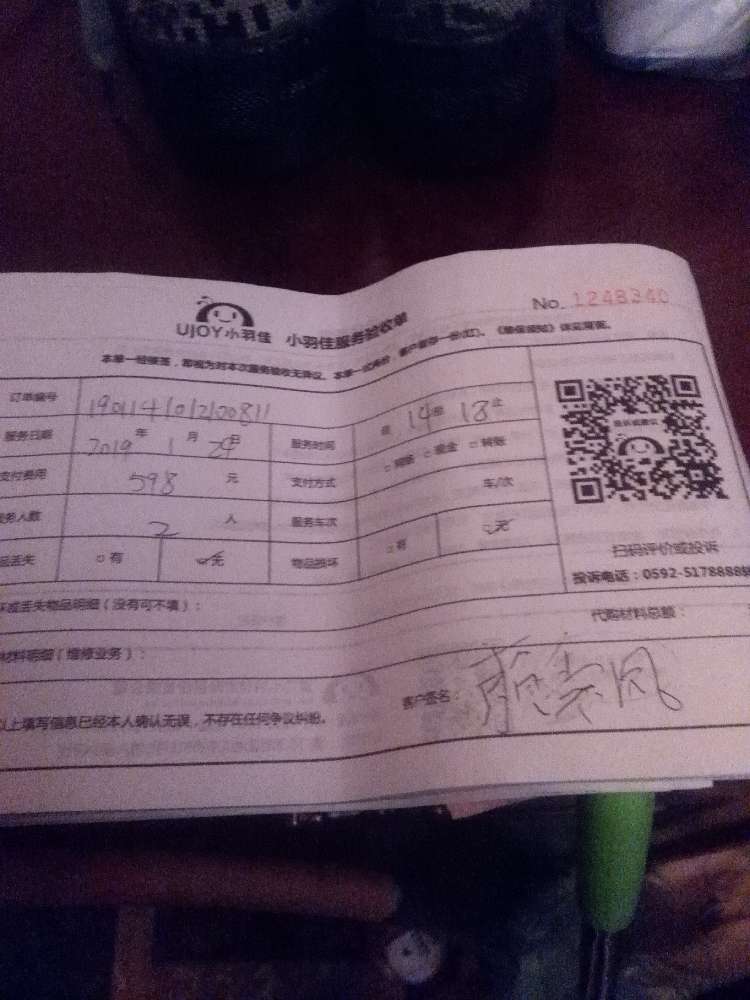 No. 1248340
UJOY小羽佳 小羽佳服务验收单
本单一经接签，即视为对本次服务验收无异议。本单一式两份，客户留存一份(红)。
订单编号 190114101200811
服务日期 2019 年 1 月 24 日 服务时间 起 14 始 18 止
支付费用 598 元 支付方式 □ 现金 □ 转账
务人数 2 人 服务车次 车/次
品丢失 □ 有 ☑ 无 物品损坏 □ 有 ☑ 无
扫码评价或投诉
投诉电话：0592-5178888
坏或丢失物品明细（没有可不填）：
代购材料总额：
材料明细（维修业务）：
客户签名：
以上填写信息已经本人确认无误，不存在任何争议纠纷。